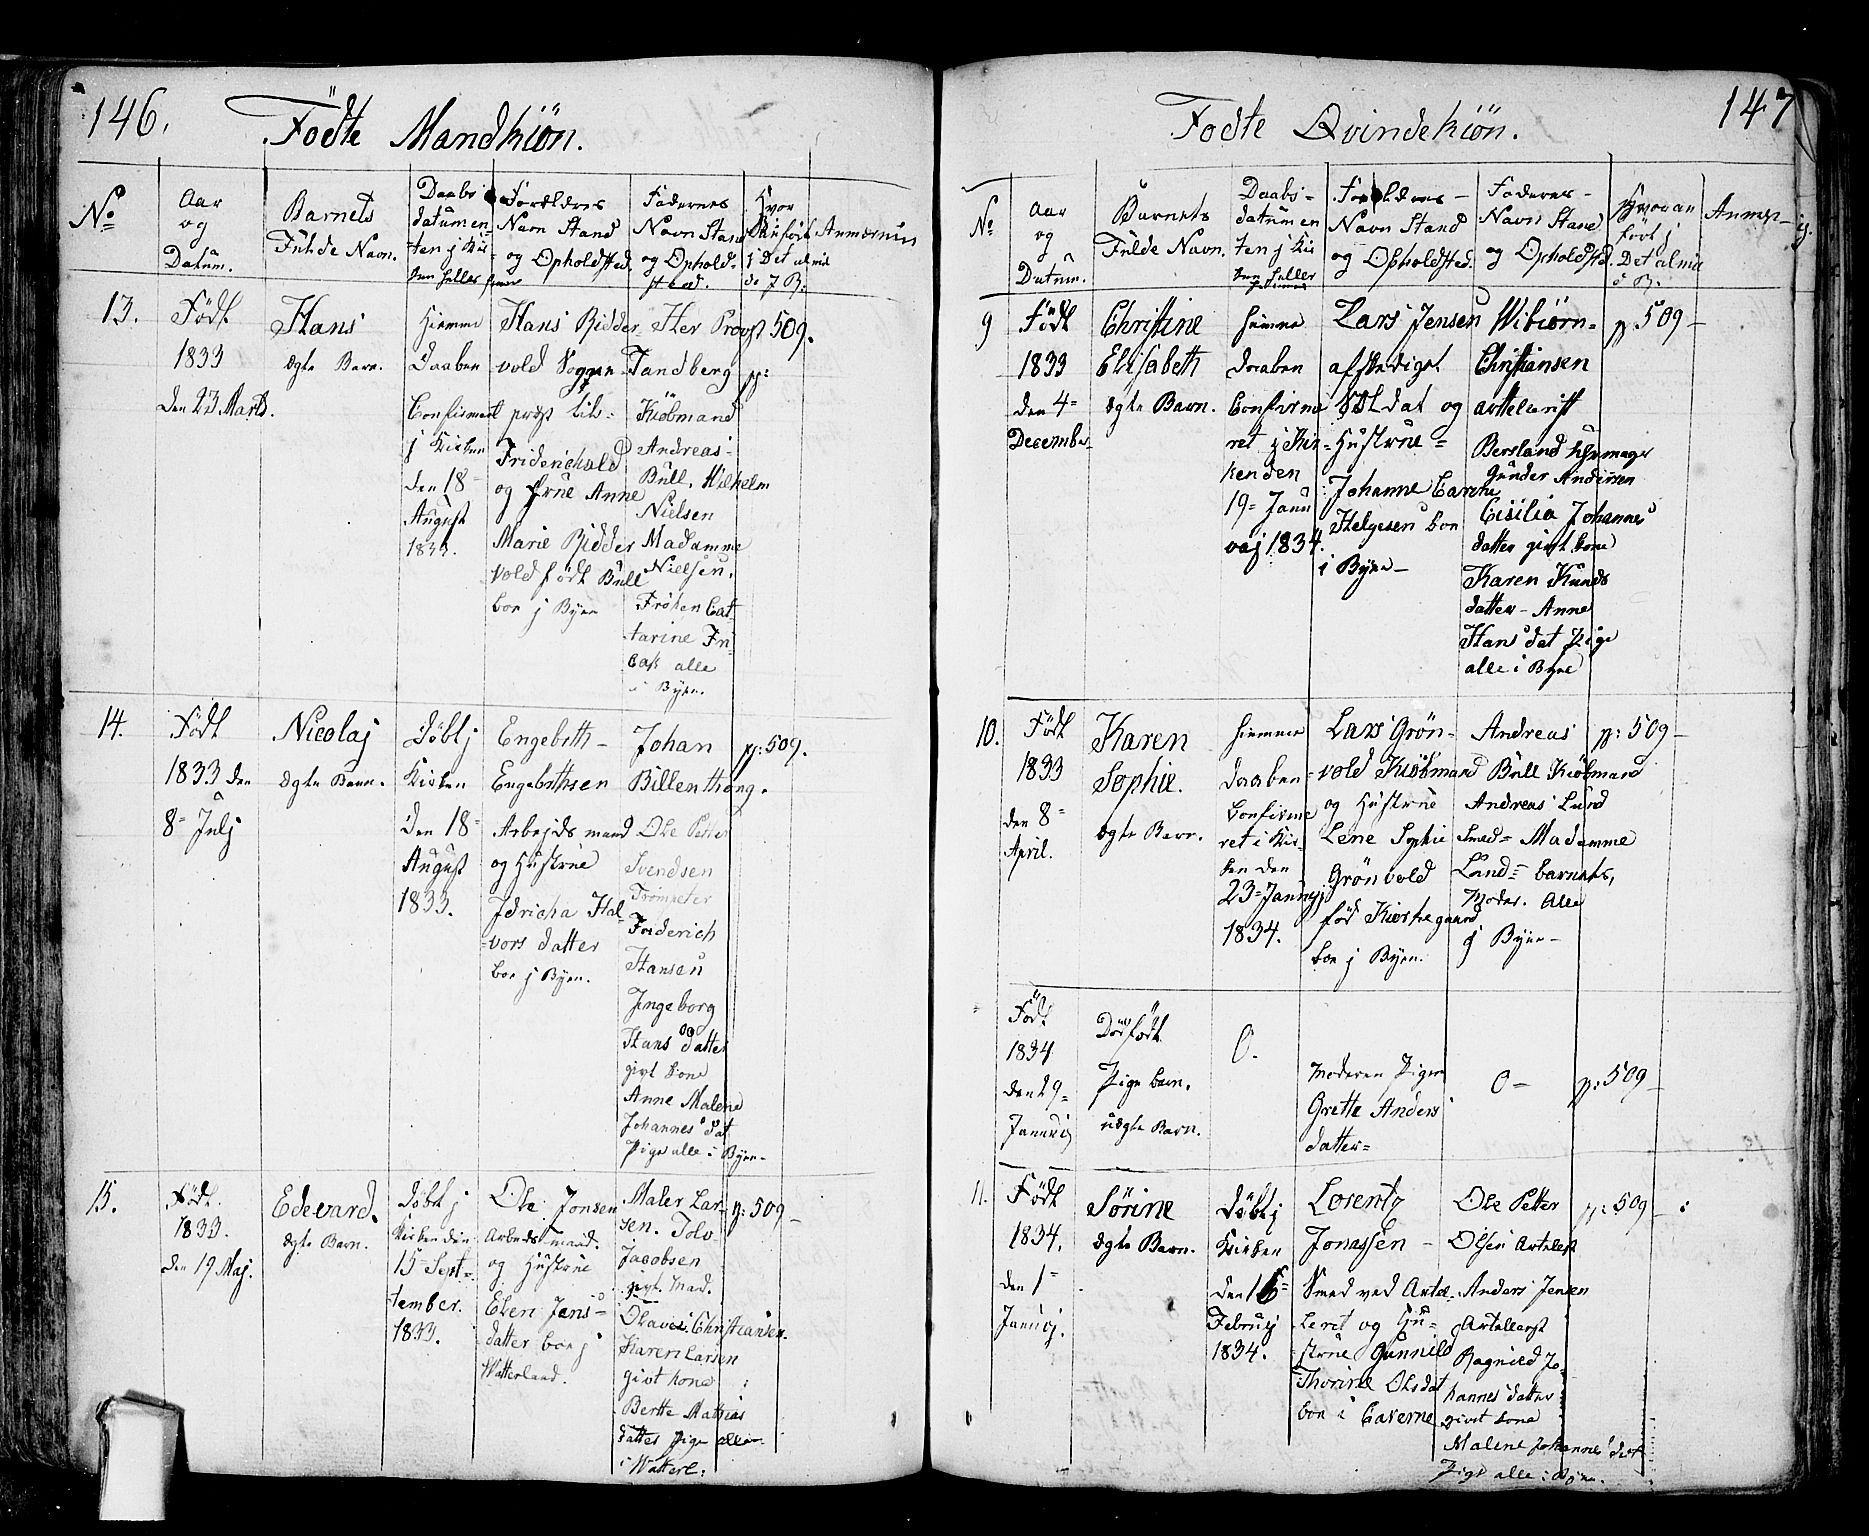 146.
Födte Mandkiön.
No
Aar
og
Datum.
Barnets
Fulde Navn.
Daabs
datumen
ten j Kir
ken heller hiemme
Forældres
Navn Stand
og Opholdsted.
Faderнes
Navn Stand
og Ophold-
sted.
Hvor
j Det almi
Anmærkning
13.
Födt
1833
den 23 Marts.
Hans
ægte Barn.
Hiemme
daaben
Confirmert
j Kirken
den 18
August
1833.
Hans Ridder
vold Soggen
præst til
Friderichald
og Frue Anne
Marie Ridder
vold födt Bull
boe j Byen
Her Provst
Tandberg
Kiöbmand
Andreas
Bull, Wilhelm
Nielsen
Madamme
Nielsen,
Fröken Cat
tarine
alle
i Byen.
p: 509.
14.
Födt
1833 den
8 Julj
Nicolaj
ægte Barn.
Döbt j
Kirken
den 18
August
1833.
Engebreth
Engebrethsen
Arbejds mand
og Hustrue
Idricha Hal
vors datter
boe j Byen.
Johan
Billenthong.
Ole Petter
Svendsen
Trompeter
Frederich
Hansen
Jngeborg
Hans datter
givt kone
Anne Malene
Johannes dat
Pige alle i Byen
p: 509.
15.
Födt.
1833.
den 19 Maj.
Edevard.
ægte Barn.
Döbt j
Kirken den
15 Sept
tember.
1833.
Ole Jonsen
Arbeds mand.
og Hustrue
Elen Jens
datter boe j
Watterland.
Maler Lar
sen. Tolv
Jacobsen
givt Mad.
Olaves Christiansen.
Karen Larsen
givt kone
Berthe Mathias
datter Pige alle
i Watterl:
p: 509
147
Fodte Qvindekiön.
No
Aar
og
Datum.
Barnets
Fulde Navn.
Daabs
datumen
ten j Kir
ken heller
hiemme
Forældrenes
Navn Stand
og Opholdsted.
Faderнes
Navn Stand
og Opholdsted.
Hvoran
fört j
Det almi
d R.
Anmer
9
Födt
1833
den 4
December
Christine
Elisabeth
ægte Barn.
hiemme
daaben
Confirme
ret j Kir
ken den
19 Janu
varj 1834.
Lars Jensen
afskediget
Soldat og
Hustrue
Johanne Carine
Helgesen boe
i Byen
Wibiörn
Christiansen
artellerist
Bersland
Gunder Andersen
Cisilia Johannes
datter givt kone
Karen Knuds
datter Anne
Hans dat Pige
alle i Byen
p 509
10.
Födt
1833
den 8
April.
Karen
Sophie.
ægte Barn.
hiemme
daaben
Confirme
ret i Kir
ken den
23 Januarj
1834.
Lars Grön
vold Kiöbmand
og Hustrue
Lene Sophie
Grönvold
föd Kierkegaard
boe j Byen.
Andreas
Bull Kiöbmand
Andreas Lund
Smed Madamme
Land barnets,
Moder. Alle
j Byen
p: 509
Födt
1834
den 29
Januarj
Död födt
Pige barn.
uægte Barn.
0.
Moderen Pigen
Grette Anders
datter
0
p: 509
11.
Födt
1834.
den 1
Januarj.
Sörine
ægte Barn.
Döbt j
Kirken
den 16
Februarj
1834.
Lorentz
Jonassen
Smed ved Artel
leret og Hu
strue Gunnild
Thorine Olsdat
boe i Caserne
Ole Petter
Olsen Artelerst
Anders Jensen
Artellerst
Ragnild Jo
hannes datter
givt kone
Malene Johannes dat
Pige alle i Byen.
p: 509